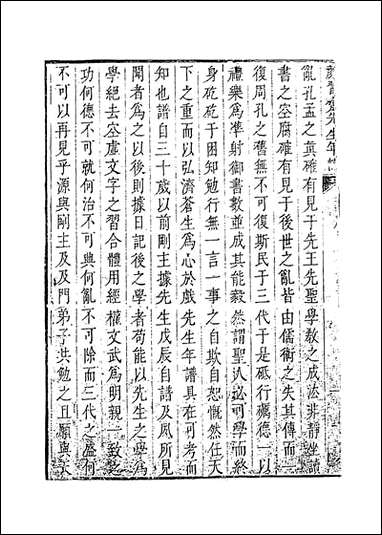 顏習齋先生年譜
亂孔孟之眞確有見于先王先聖學敎之成法非靜坐讀
書之空腐確有見于後世之亂皆由儒術之失其傳而一
復周孔之舊無不可復斯民于三代于是砥行礪德一以
禮樂爲準射御書數並成其能毅然謂聖人必可學而終
身矻矻于困知勉行無一言一事之自欺自恕慨然任天
下之重而以弘濟蒼生爲心於戲先生年譜具在可考而
知也譜自三十歲以前剛主據先生戊辰自譜及夙所見
聞者爲之以後則據日記後之學者苟能以先生之學爲
學絕去空虛文字之習合體用經權文武爲明親一致之
功何德不可就何治不可興何亂不可除而三代之盛何
不可以再見乎源與剛主及及門弟子共勉之且願與天